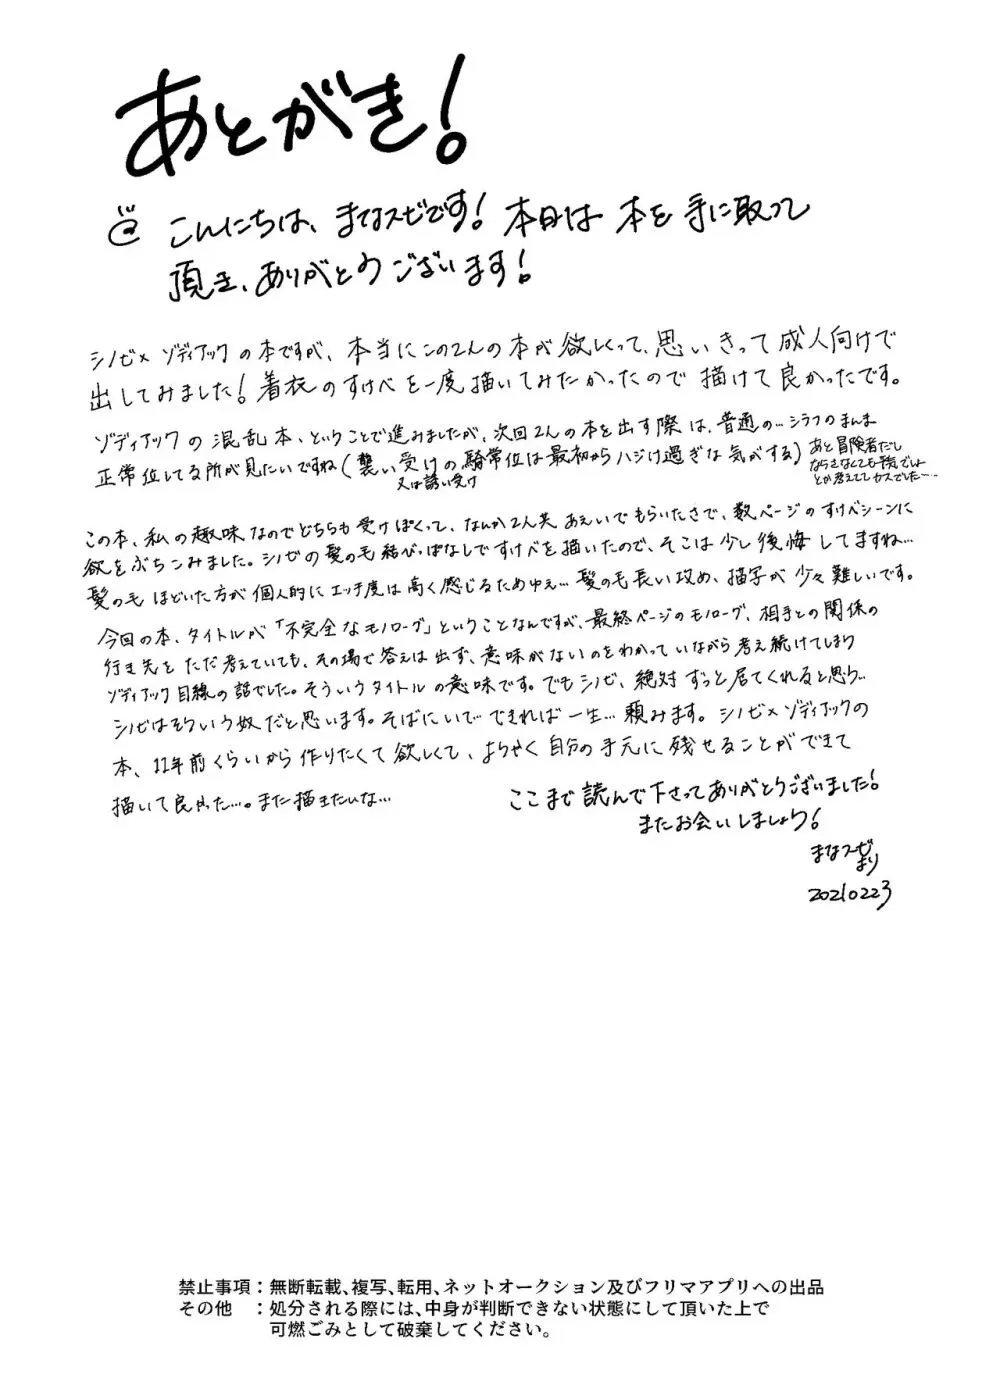 あとがき!
こんにちは、まなスビです! 本日は 本を 手に取って
頂き、ありがとうございます!
シノビ×ゾディアックの本ですが、本当にこの2人の本が欲しくって、思いきって成人向けで
出してみました! 着衣のすけべを一度描いてみたかったので描けて良かったです。
ゾディアックの混乱本、ということで進みましたが、次回2人の本を出す際は、普通の…シラフのまんま
正常位してる所が見たいですね(襲い受けの騎常位は最初からハジけ過ぎな気がする)
又は誘い受け
あと冒険者だし
この本、私の趣味なのでどちらも受けぽくって、なんか2人共あえいでもらいたさで、数ページのすけべシーンに
欲をぶちこみました。シノビの髪の毛結びっぱなしですけべを描いたので、そこは少し後悔してますね…
髪の毛ほどいた方が個人的にエッチ度は高く感じるためゆえ…髪の毛長い攻め、描写が少々難しいです。
今回の本、タイトルが「不完全なモノローグ」ということなんですが、最終ページのモノローグ、相手との関係の
行き先をただ考えていても、その場で答えは出ず、意味がないのをわかっていながら考え続けてしまう
ゾディアック目線の話でした。そういうタイトルの意味です。でもシノビ、絶対ずっと居てくれると思う…
シノビはそういう奴だと思います。そばにいて…できれば一生…頼みます。シノビ×ゾディアックの
本、11年前くらいから作りたくて欲しくて、ようやく自分の手元に残せることができて
描いて良かった…。また描きたいな…
ここまで読んで下さってありがとうございました!
またお会いしましょう!
まなスビ
より
20210223
禁止事項:無断転載、複写、転用、ネットオークション及びフリマアプリへの出品
その他 :処分される際には、中身が判断できない状態にして頂いた上で
可燃ごみとして破棄してください。